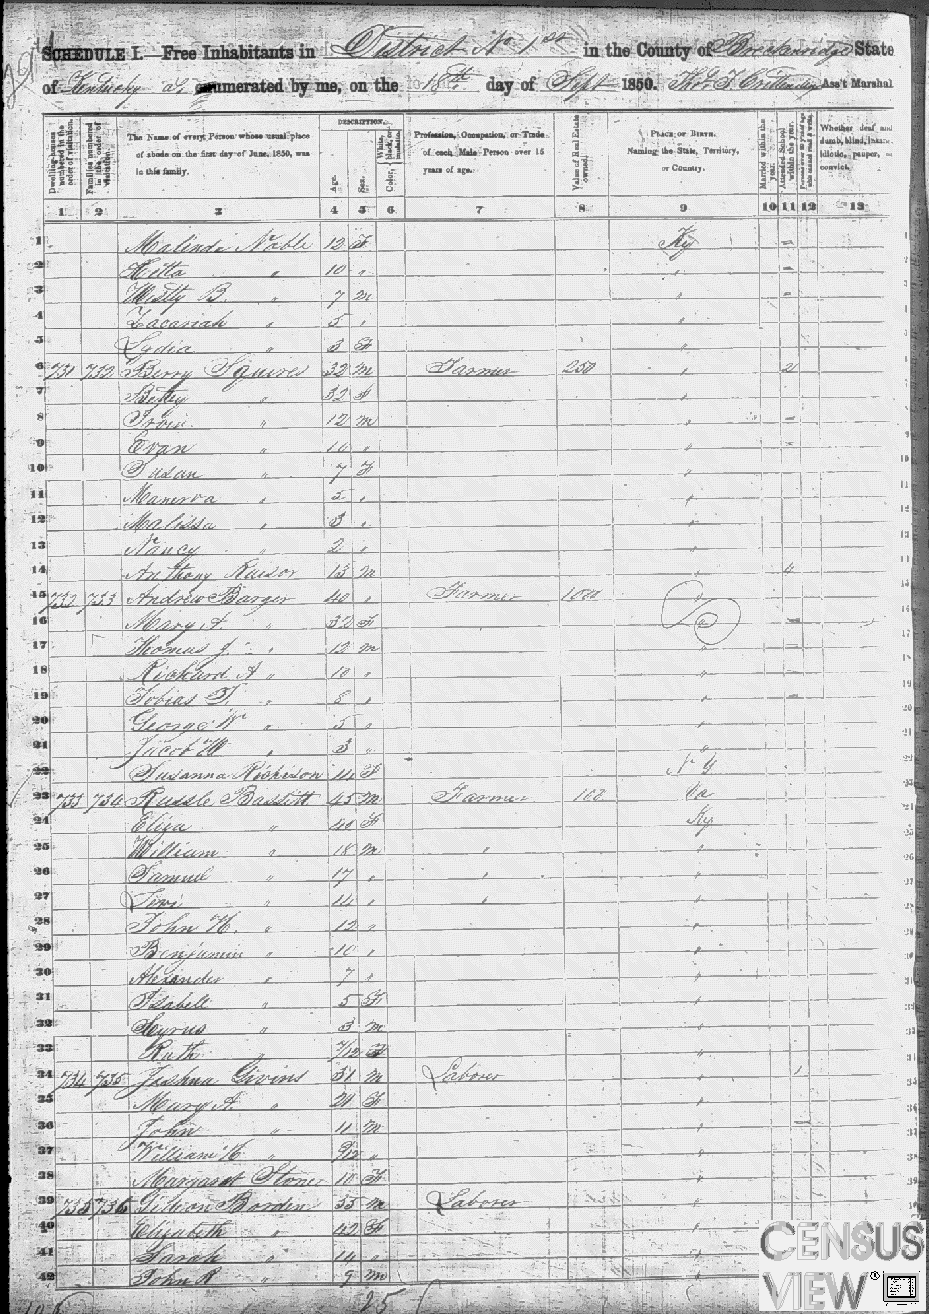 SCHEDULE I.—Free Inhabitants in District No 1st in the County of Breckenridge State
of Kentucky enumerated by me, on the 18th day of Sept 1850. Thos. J. Crittenden Ass't Marshal
Dwelling-houses numbered in the order of visitation.
Families numbered in the order of visitation.
The Name of every Person whose usual place of abode on the first day of June, 1850, was in this family.
DESCRIPTION.
Age.
Sex.
Color, White, black, or mulatto.
Profession, Occupation, or Trade of each Male Person over 15 years of age.
Value of Real Estate owned.
PLACE OF BIRTH. Naming the State, Territory, or Country.
Married within the year.
Attended School within the year.
Persons over 20 years of age who cannot read & write.
Whether deaf and dumb, blind, insane, idiotic, pauper, or convict.
1 2 3 4 5 6 7 8 9 10 11 12 13
1 Malinda Noble 12 F Ky
2 Hetta " 10 " "
3 Westly B. " 7 m "
4 Zacariah " 5 " "
5 Lydia " 3 F "
6 731 732 Berry Squires 32 m Farmer 250 "
7 Betsy " 32 F "
8 Irvin " 12 m "
9 Evan " 10 " "
10 Susan " 7 F "
11 Manerva " 5 " "
12 Malissa " 3 " "
13 Nancy " 2 " "
14 Anthony Raisor 13 m "
15 732 733 Andrew Barger 40 " Farmer 1000 "
16 Mary A. " 32 F "
17 Thomas J. " 12 m "
18 Richard A " 10 " "
19 Tobias T. " 8 " "
20 George W " 5 " "
21 Jacob M " 3 " "
22 Susanna Richison 14 F N Y
23 733 734 Russle Bassitt 45 m Farmer 100 Va
24 Eliza " 40 F Ky
25 William " 18 m " "
26 Samuel " 17 " " "
27 Levi " 14 " " "
28 John H. " 12 " "
29 Benjamin " 10 " "
30 Alexander " 7 " "
31 Isabell " 5 F "
32 Syrus " 3 m "
33 Ruth 7/12 F "
34 734 735 Joshua Givins 31 m Laborer " 1
35 Mary A. " 21 F "
36 John " 11 m "
37 William H " 9/12 " "
38 Margaret Stoner 18 F "
39 735 736 Bordin 33 m Laborer "
40 Elizabeth " 42 F "
41 Sarah " 14 " "
42 John R " 9 m "
25
CENSUS
VIEW